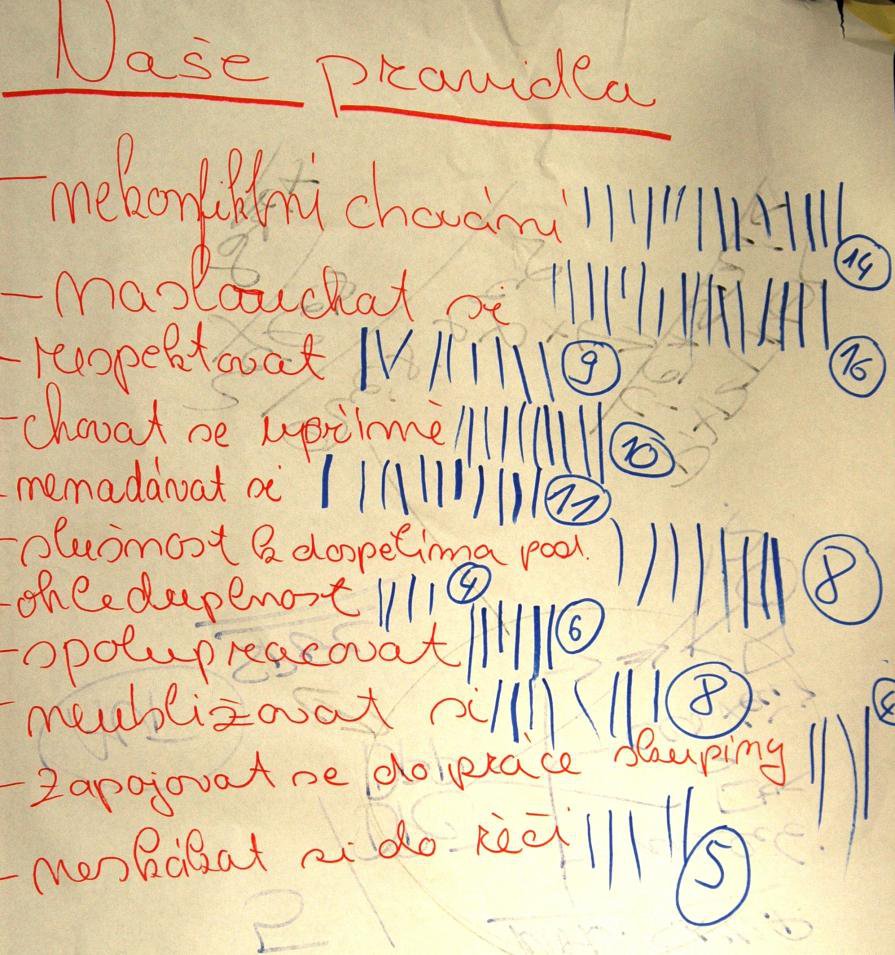 Naše pravidla
- nekonfiktní chování 14
- naslouchat si 16
- respektovat 9
- chovat se upřímně 10
- nenadávat si 11
- slušnost k dospělíma posl. 8
- ohleduplnost 4
- spolupracovat 6
- neubližovat si 8
- zapojovat se do práce skupiny 4
- neskákat si do řeči 5